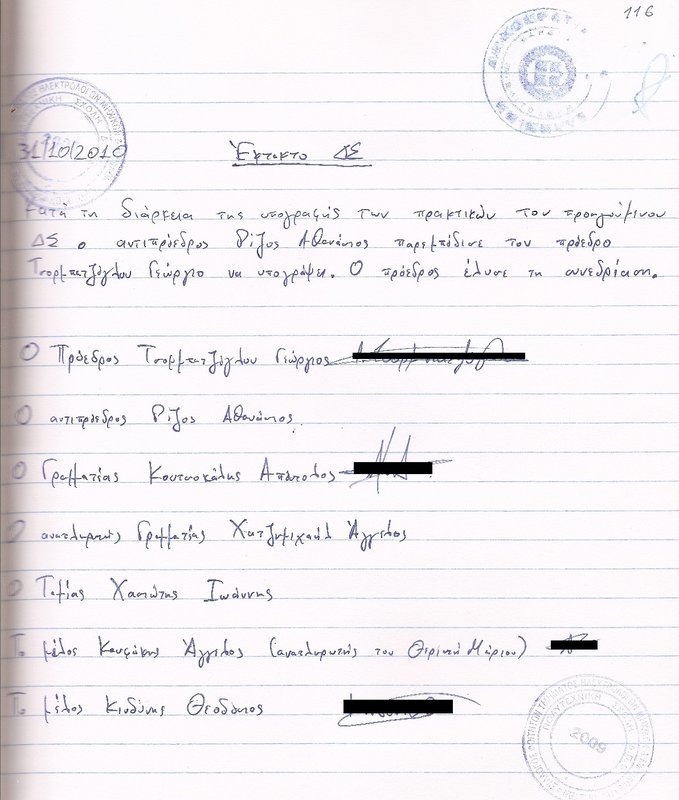 116
31/10/2010
Έκτακτο ΔΣ
Κατά τη διάρκεια της υπογραφής των πρακτικών του προηγούμενου
ΔΣ ο αντιπρόεδρος Ρίζος Αθανάσιος παρεμπόδισε τον πρόεδρο
Τσορμπατζόγλου Γεώργιο να υπογράψει. Ο πρόεδρος έλυσε τη συνεδρίαση.
Ο Πρόεδρος Τσορμπατζόγλου Γεώργιος
Ο αντιπρόεδρος Ρίζος Αθανάσιος
Ο Γραμματέας Απόστολος
Ο αναπληρωτής Γραμματέας Χατζημιχαήλ Άγγελος
Ο Ταμίας Ιωάννης
Το μέλος Άγγελος (αναπληρωτής του Μάριου)
Το μέλος Θεοδόσιος
2009